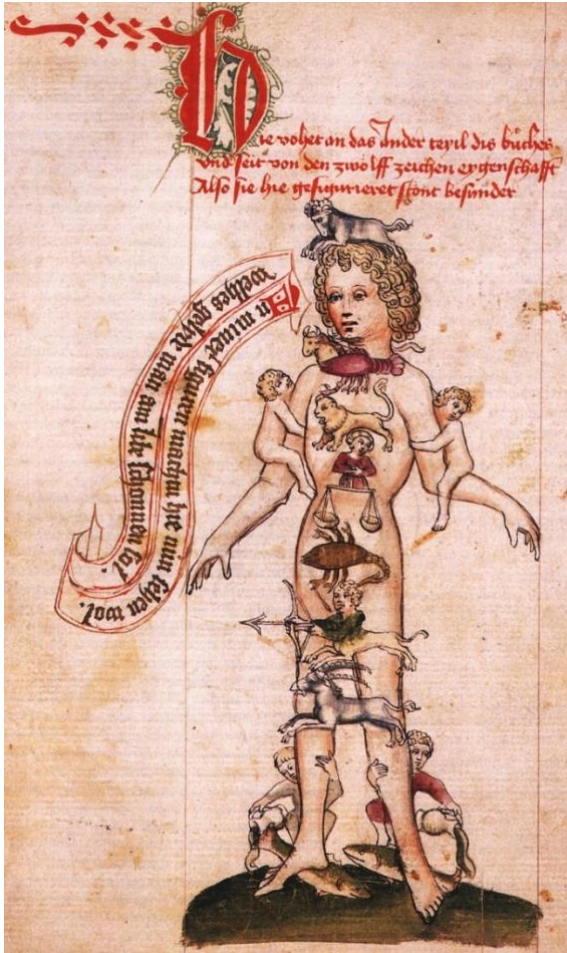 Hie vohet an das Ander teyil dis bůches
Vnd seit von den zwölff zeichen eygenschafft
Also sie hie gefigurieret stont besunder
In miner figuren machtu hie nun sehen wol.
welhes gelyde man am schonen sol.